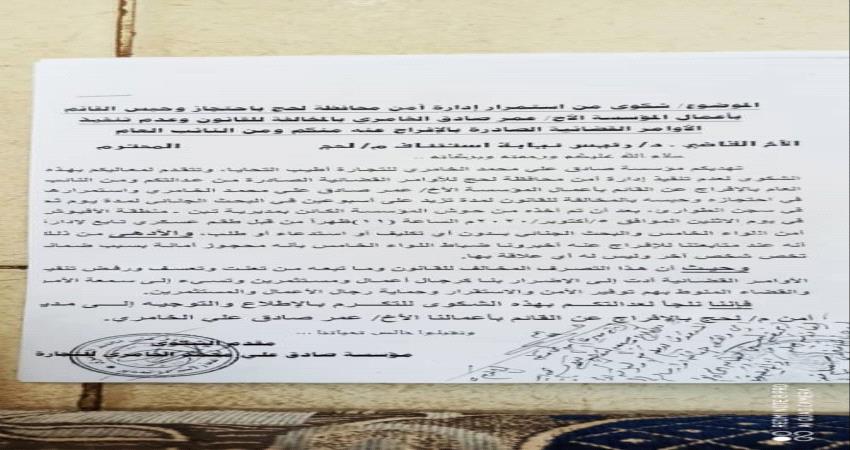 الموضوع/ شكوى من استمرار إدارة أمن محافظة لحج باحتجاز وحبس القائم
بأعمال المؤسسة الأخ/ عمر صادق الخامري بالمخالفة للقانون وعدم تنفيذ
الأوامر القضائية الصادرة بالإفراج عنه منكم ومن النائب العام
الأخ القاضي . د/ رئيس نيابة استئناف م/ لحج المحترم
سلام الله عليكم ورحمته وبركاته ..
تهديكم مؤسسة صادق علي محمد الخامري للتجارة أطيب التحايا، وتتقدم لمعاليكم بهذه
الشكوى لعدم تنفيذ إدارة أمن محافظة لحج للأوامر القضائية الصادرة من عدالتكم ومن النائب
العام بالإفراج عن القائم بأعمال المؤسسة الأخ/ عمر صادق علي محمد الخامري واستمرارها
في احتجازه وحبسه بالمخالفة للقانون لمدة تزيد على أسبوعين في البحث الجنائي لمدة يوم ثم
في سجن الطوارئ، بعد أن تم أخذه من حوش المؤسسة الكائن بمديرية تبن - منطقة
في يوم الاثنين الموافق ٥/أكتوبر/٢٠٢٠م الساعة (١١) ظهراً من قبل طقم عسكري تابع لإدارة
أمن اللواء الخامس والبحث الجنائي بدون أي تكليف أو استدعاء أو طلب، والأدهى من ذلك
أنه عند متابعتنا للإفراج عنه أخبرونا ضباط اللواء الخامس بأنه محجوز أمانة بسبب ضمانة
تخص شخص آخر وليس له أي علاقة بها.
وحيث أن هذا التصرف المخالف للقانون وما تبعه من تعنت وتعسف ورفض تنفيذ
الأوامر القضائية أدت إلى الإضرار بنا كرجال أعمال ومستثمرين وتسيء إلى سمعة الأمن
والقضاء المنوط بهم توفير الأمن والاستقرار وحماية رجال الأعمال والمستثمرين.
فإننا نلجأ لعدالتكم بهذه الشكوى للتكرم بالإطلاع والتوجيه إلى مدير
أمن م/ لحج بالإفراج عن القائم بأعمالنا الأخ/ عمر صادق علي الخامري.
وتقبلوا خالص تحياتنا ...
مقدم الشكوى
مؤسسة صادق علي محمد الخامري للتجارة
REDMI NOTE 8 PRO
AI QUAD CAMERA